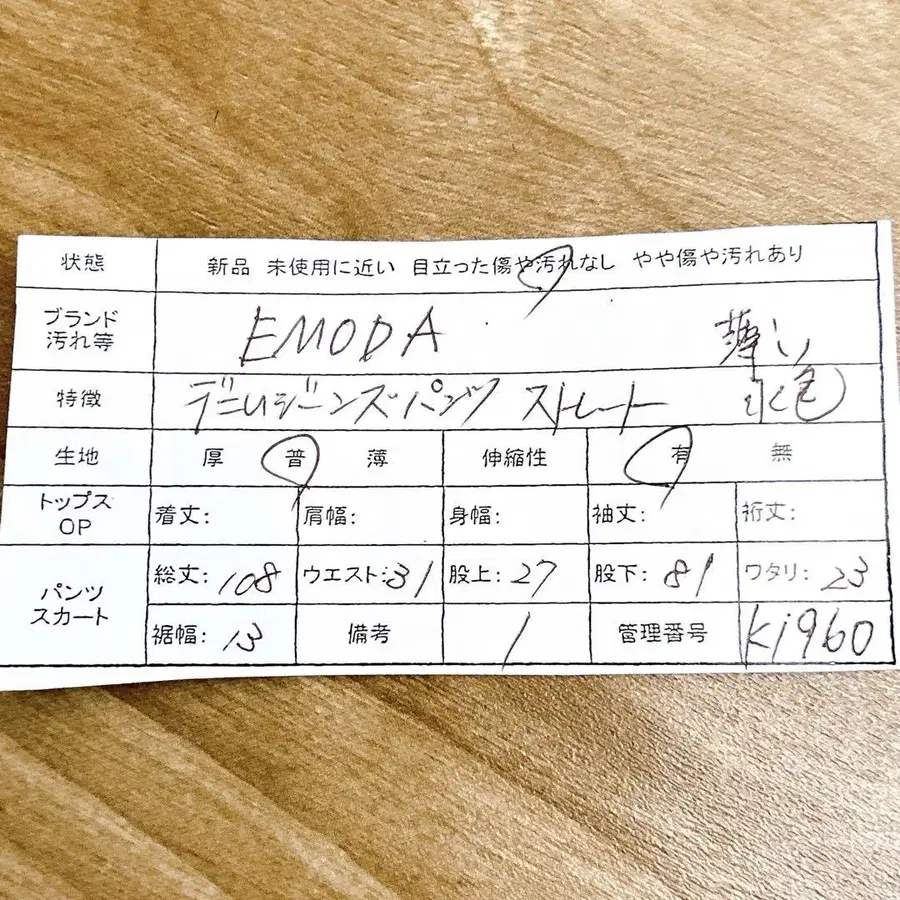 状態 新品 未使用に近い 目立った傷や汚れなし やや傷や汚れあり
ブランド
汚れ等 EMODA 薄い
特徴 デニムジーンズパンツ ストレート 水色
生地 厚 普 薄 伸縮性 有 無
トップス
OP 着丈: 肩幅: 身幅: 袖丈: 裄丈:
パンツ
スカート
総丈: 108 ウエスト: 31 股上: 27 股下: 81 ワタリ: 23
裾幅: 13 備考 / 管理番号 K1960